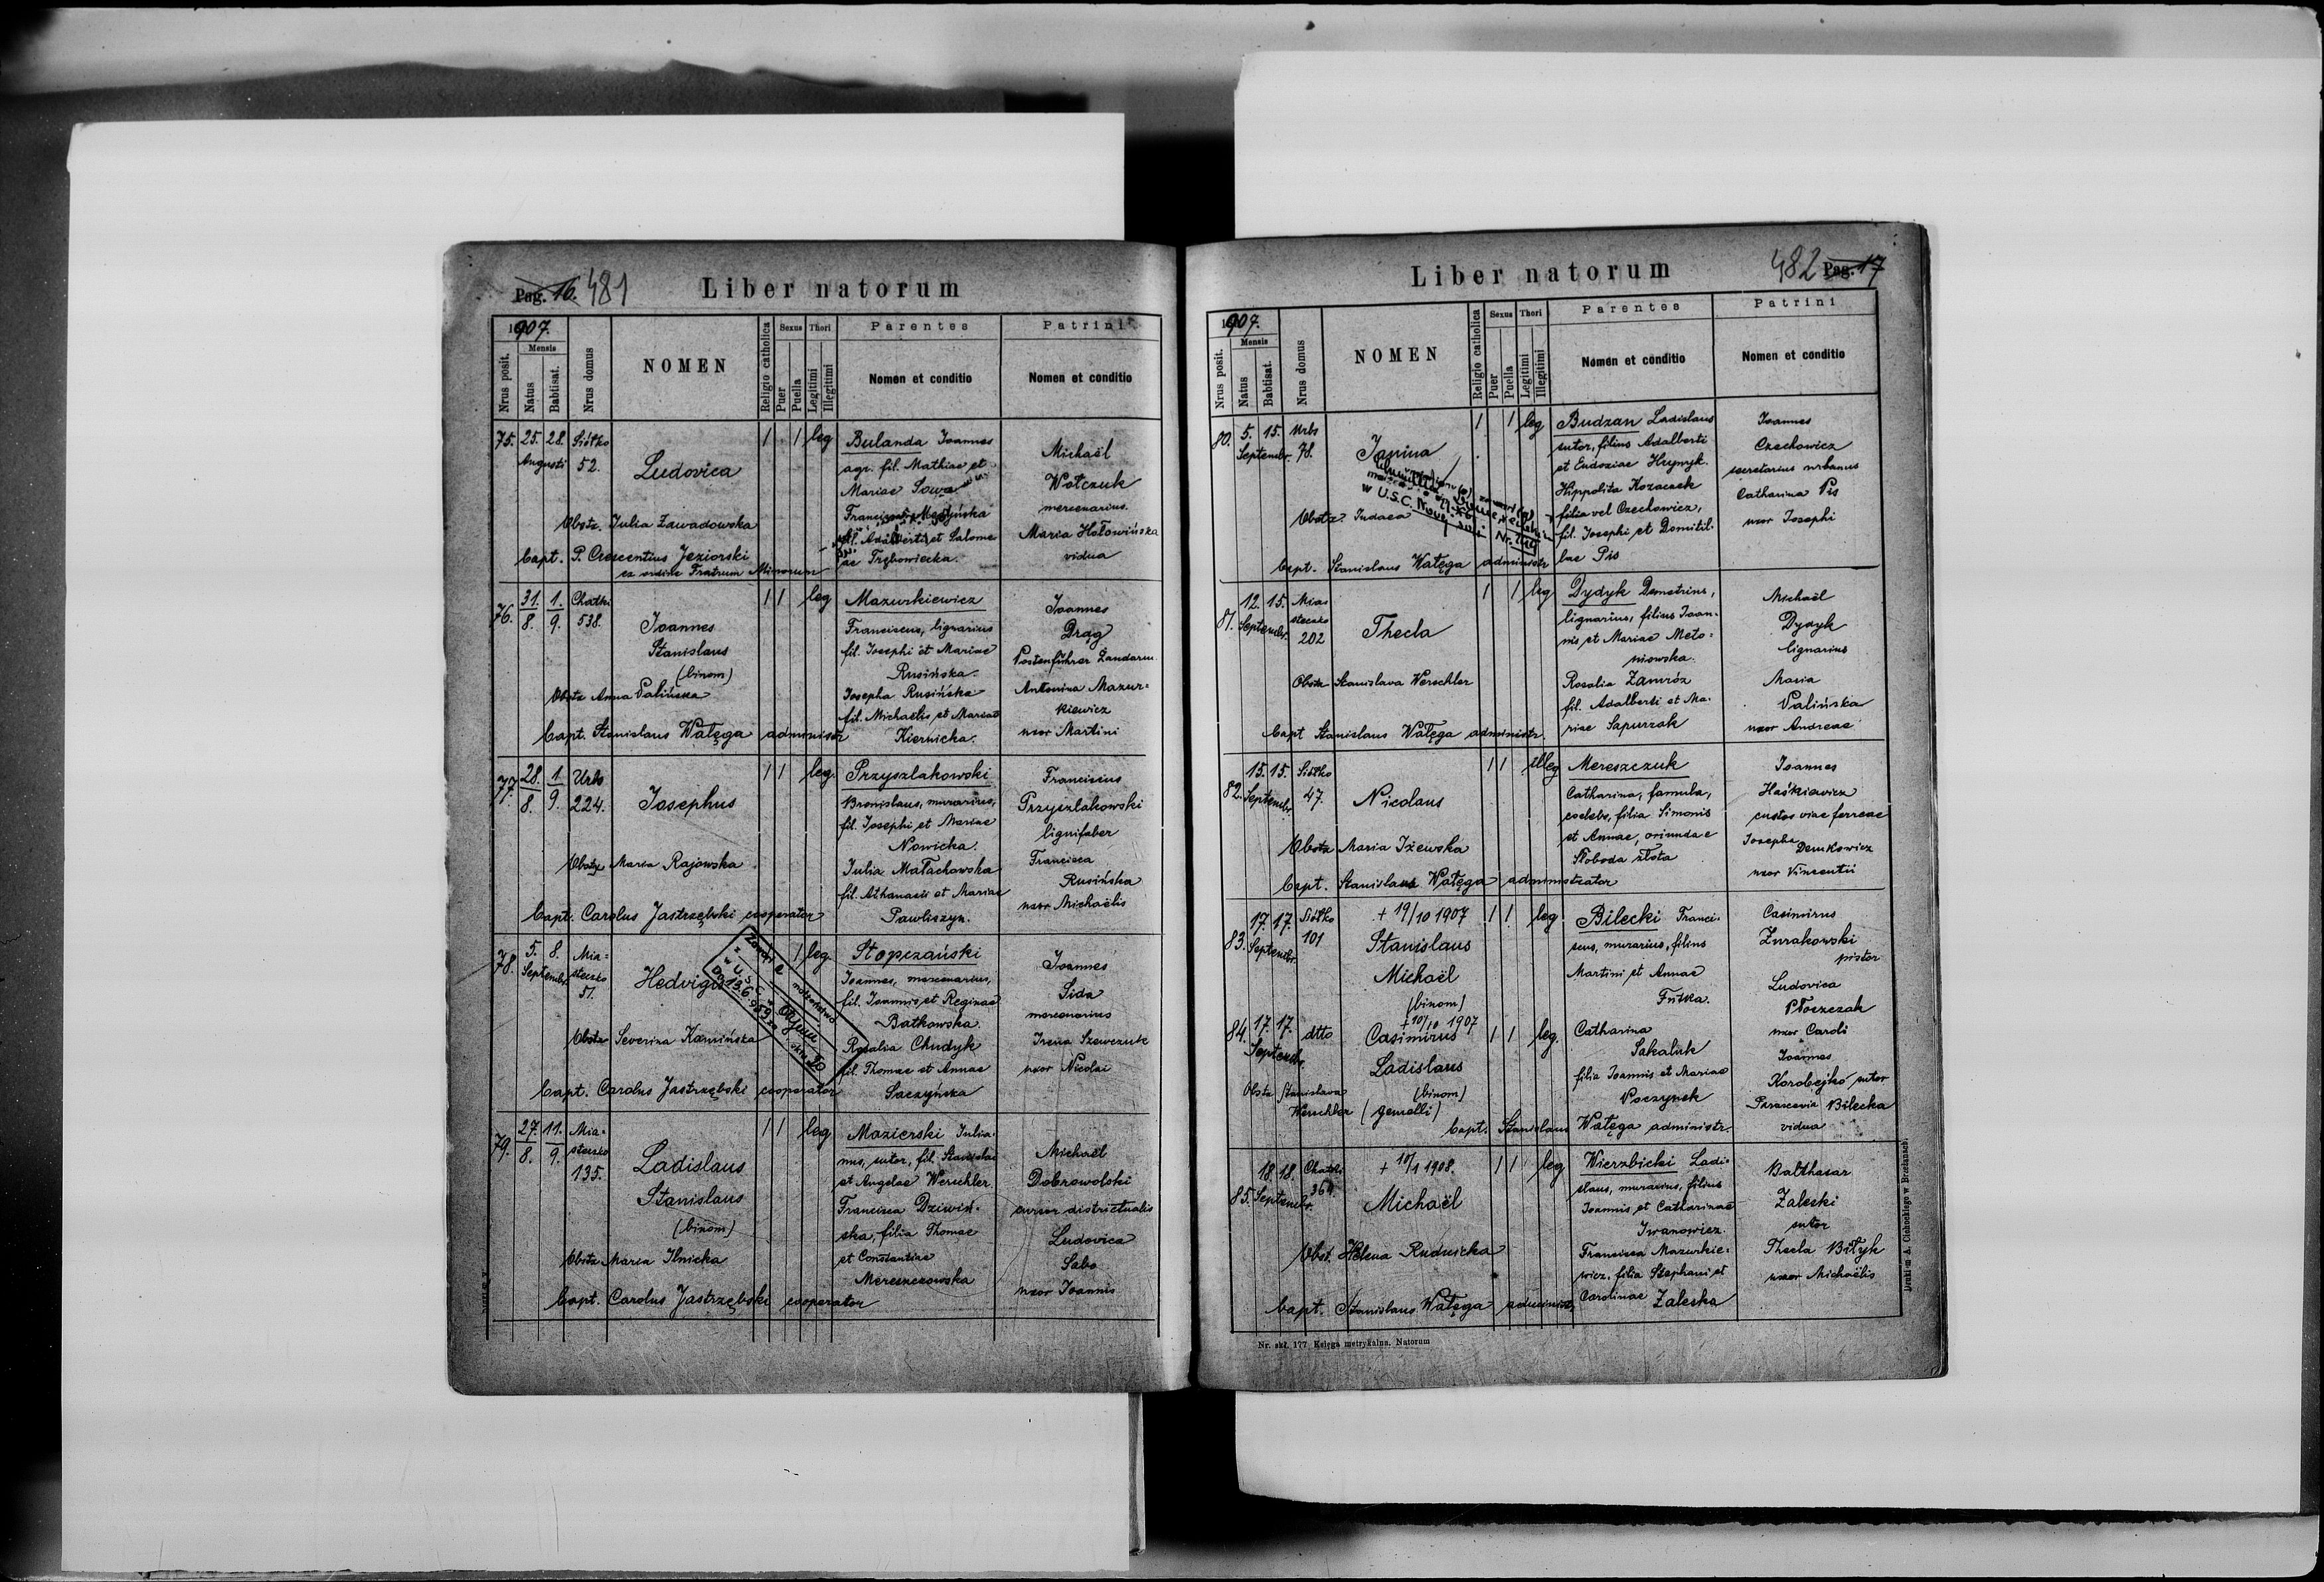 Pag. 16. 481
Liber natorum
1907.
Nrus posit.
Mensis
Natus
Babtisat.
Nrus domus
NOMEN
Religio catholica
Sexus
Puer
Puella
Thori
Legitimi
Illegitimi
Parentes
Nomen et conditio
Patrini
Nomen et conditio
75.
25. 28.
Augusti
Siółko
52.
Ludovica
1 1 leg
Obstx. Julia Zawadowska
bapt. P. Crescentius Jeziorski
ex ordine Fratrum Minorum
Bulanda Joannes
agr. fil. Mathiae et
Mariae Sowa
Medyńska
fil. Adalberti et Salome
ae Trębowiecka.
Michaël
Wołczuk
mercenarius.
Maria Hołowińska
vidua
76.
31. 1.
8. 9.
Chatki
538.
Joannes
Stanislaus
(binom)
1 1 leg
Obstx Anna Palińska
bapt. Stanislaus Wałęga administr
Mazurkiewicz
Franciscus, lignarius
fil. Josephi et Mariae
Rusińska.
Josepha Rusińska
fil. Michaëlis et Mariae
Kiernicka.
Joannes
Drąg
Postenführer Żandarm.
Antonina Mazur=
kiewicz
uxor Martini
77.
28. 1.
8. 9.
Urbs
224.
Josephus
1 1 leg.
Obstx Maria Rajowska
bapt. Carolus Jastrzębski cooperator
Przyszlakowski
Bronislaus, murarius,
fil. Josephi et Mariae
Nowicka.
Julia Małachowska
fil. Athanasii et Mariae
Pawliszyn.
Franciscus
Przyszlakowski
lignifaber
Francisca
Rusińska
uxor Michaëlis
78.
5. 8.
Septembr.
Mia=
steczko
51.
Hedvigis
1 leg.
Obstx Severina Kamińska
bapt. Carolus Jastrzębski cooperator
Stopczański
Joannes, mercenarius,
fil. Joannis et Reginae
Batkowska.
Rosalia Chudyk
fil. Thomae et Annae
Saczyńska
Joannes
Sida
mercenarius
Irena Szewczuk
uxor Nicolai
79.
27. 11.
8. 9.
Mia=
steczko
135.
Ladislaus
Stanislaus
(binom)
1 1 leg
Obstx Maria Ilnicka
bapt. Carolus Jastrzębski cooperator
Mazierski Julia=
nus, sutor, fil. Stanislai
et Angelae Werschler.
Francisca Dziwiń=
ska, filia Thomae
et Constantiae
Mereszczowska
Michaël
Dobrowolski
cursor districtualis
Ludovica
Sabo
uxor Joannis
Liber natorum
482 Pag. 17
1907.
Nrus posit.
Mensis
Natus
Babtisat.
Nrus domus
NOMEN
Religio catholica
Sexus
Puer
Puella
Thori
Legitimi
Illegitimi
Parentes
Nomen et conditio
Patrini
Nomen et conditio
80.
5. 15.
Septembr.
Urbs
78.
Janina
1 1 leg
w U.S.C. Nowej Soli
Obstx. Judaea
bapt. Stanislaus Wałęga administr
Budzan Ladislaus
sutor, filius Adalberti
et Eudoxiae Hrynyk.
Hippolita Kozaczek
filia vel Czechowicz,
fil. Josephi et Domitil=
lae Pis
Joannes
Czechowicz
secretarius urbanus
Catharina Pis
uxor Josephi
81.
12. 15.
Septembr.
Mias
steczko
202
Thecla
1 1 leg
Obstx Stanislava Werschler
bapt Stanislaus Wałęga administr.
Dydyk Demetrius,
lignarius, filius Joan=
nis et Mariae Meto=
niowska.
Rosalia Zamróz
fil. Adalberti et Ma=
riae Sapurzak
Michaël
Dydyk
lignarius
Maria
Palińska
uxor Andreae
82.
15. 15.
Septembr.
Siółko
47.
Nicolaus
1 1 illeg
Obstx Maria Iżewska
bapt. Stanislaus Wałęga administrator
Mereszczuk
Catharina, famula,
coelebs, filia Simonis
et Annae, oriunda e
Słoboda złota
Joannes
Haśkiewicz
custos viae ferreae
Josepha
Demkowicz
uxor Vincentii
83.
17. 17.
Septembr.
Siółko
101
+ 19/10 1907
Stanislaus
Michaël
(binom)
1 1 leg
Bilecki Franci=
scus, murarius, filius
Martini et Annae
Futka.
Casimirus
Żurakowski
pistor
Ludovica
Płoszczak
uxor Caroli
84.
17. 17.
Septembr.
dtto
+ 10/10 1907
Casimirus
Ladislaus
(binom)
(gemelli)
1 1 leg.
Obstx Stanislava
Werschler
bapt. Stanislaus Wałęga administr.
Catharina
Sakaluk
filia Joannis et Mariae
Poczynek
Joannes
Korobejko sutor
Parascevia Bilecka
vidua
85.
18. 18.
Septembr.
Chatki
364.
+ 10/1 1908.
Michaël
1 1 leg
Obst. Helena Rudnicka
bapt. Stanislaus Wałęga administr.
Wierzbicki Ladi=
slaus, murarius, filius
Joannis et Catharinae
Iwanowicz.
Francisca Mazurkie=
wicz, filia Stephani et
Carolinae Zaleska
Balthasar
Zaleski
sutor
Thecla Biłyk
uxor Michaëlis
Nr. skł. 177 Księga metrykalna. Natorum
Druki m A. Cichockiego w Brzeżanach.